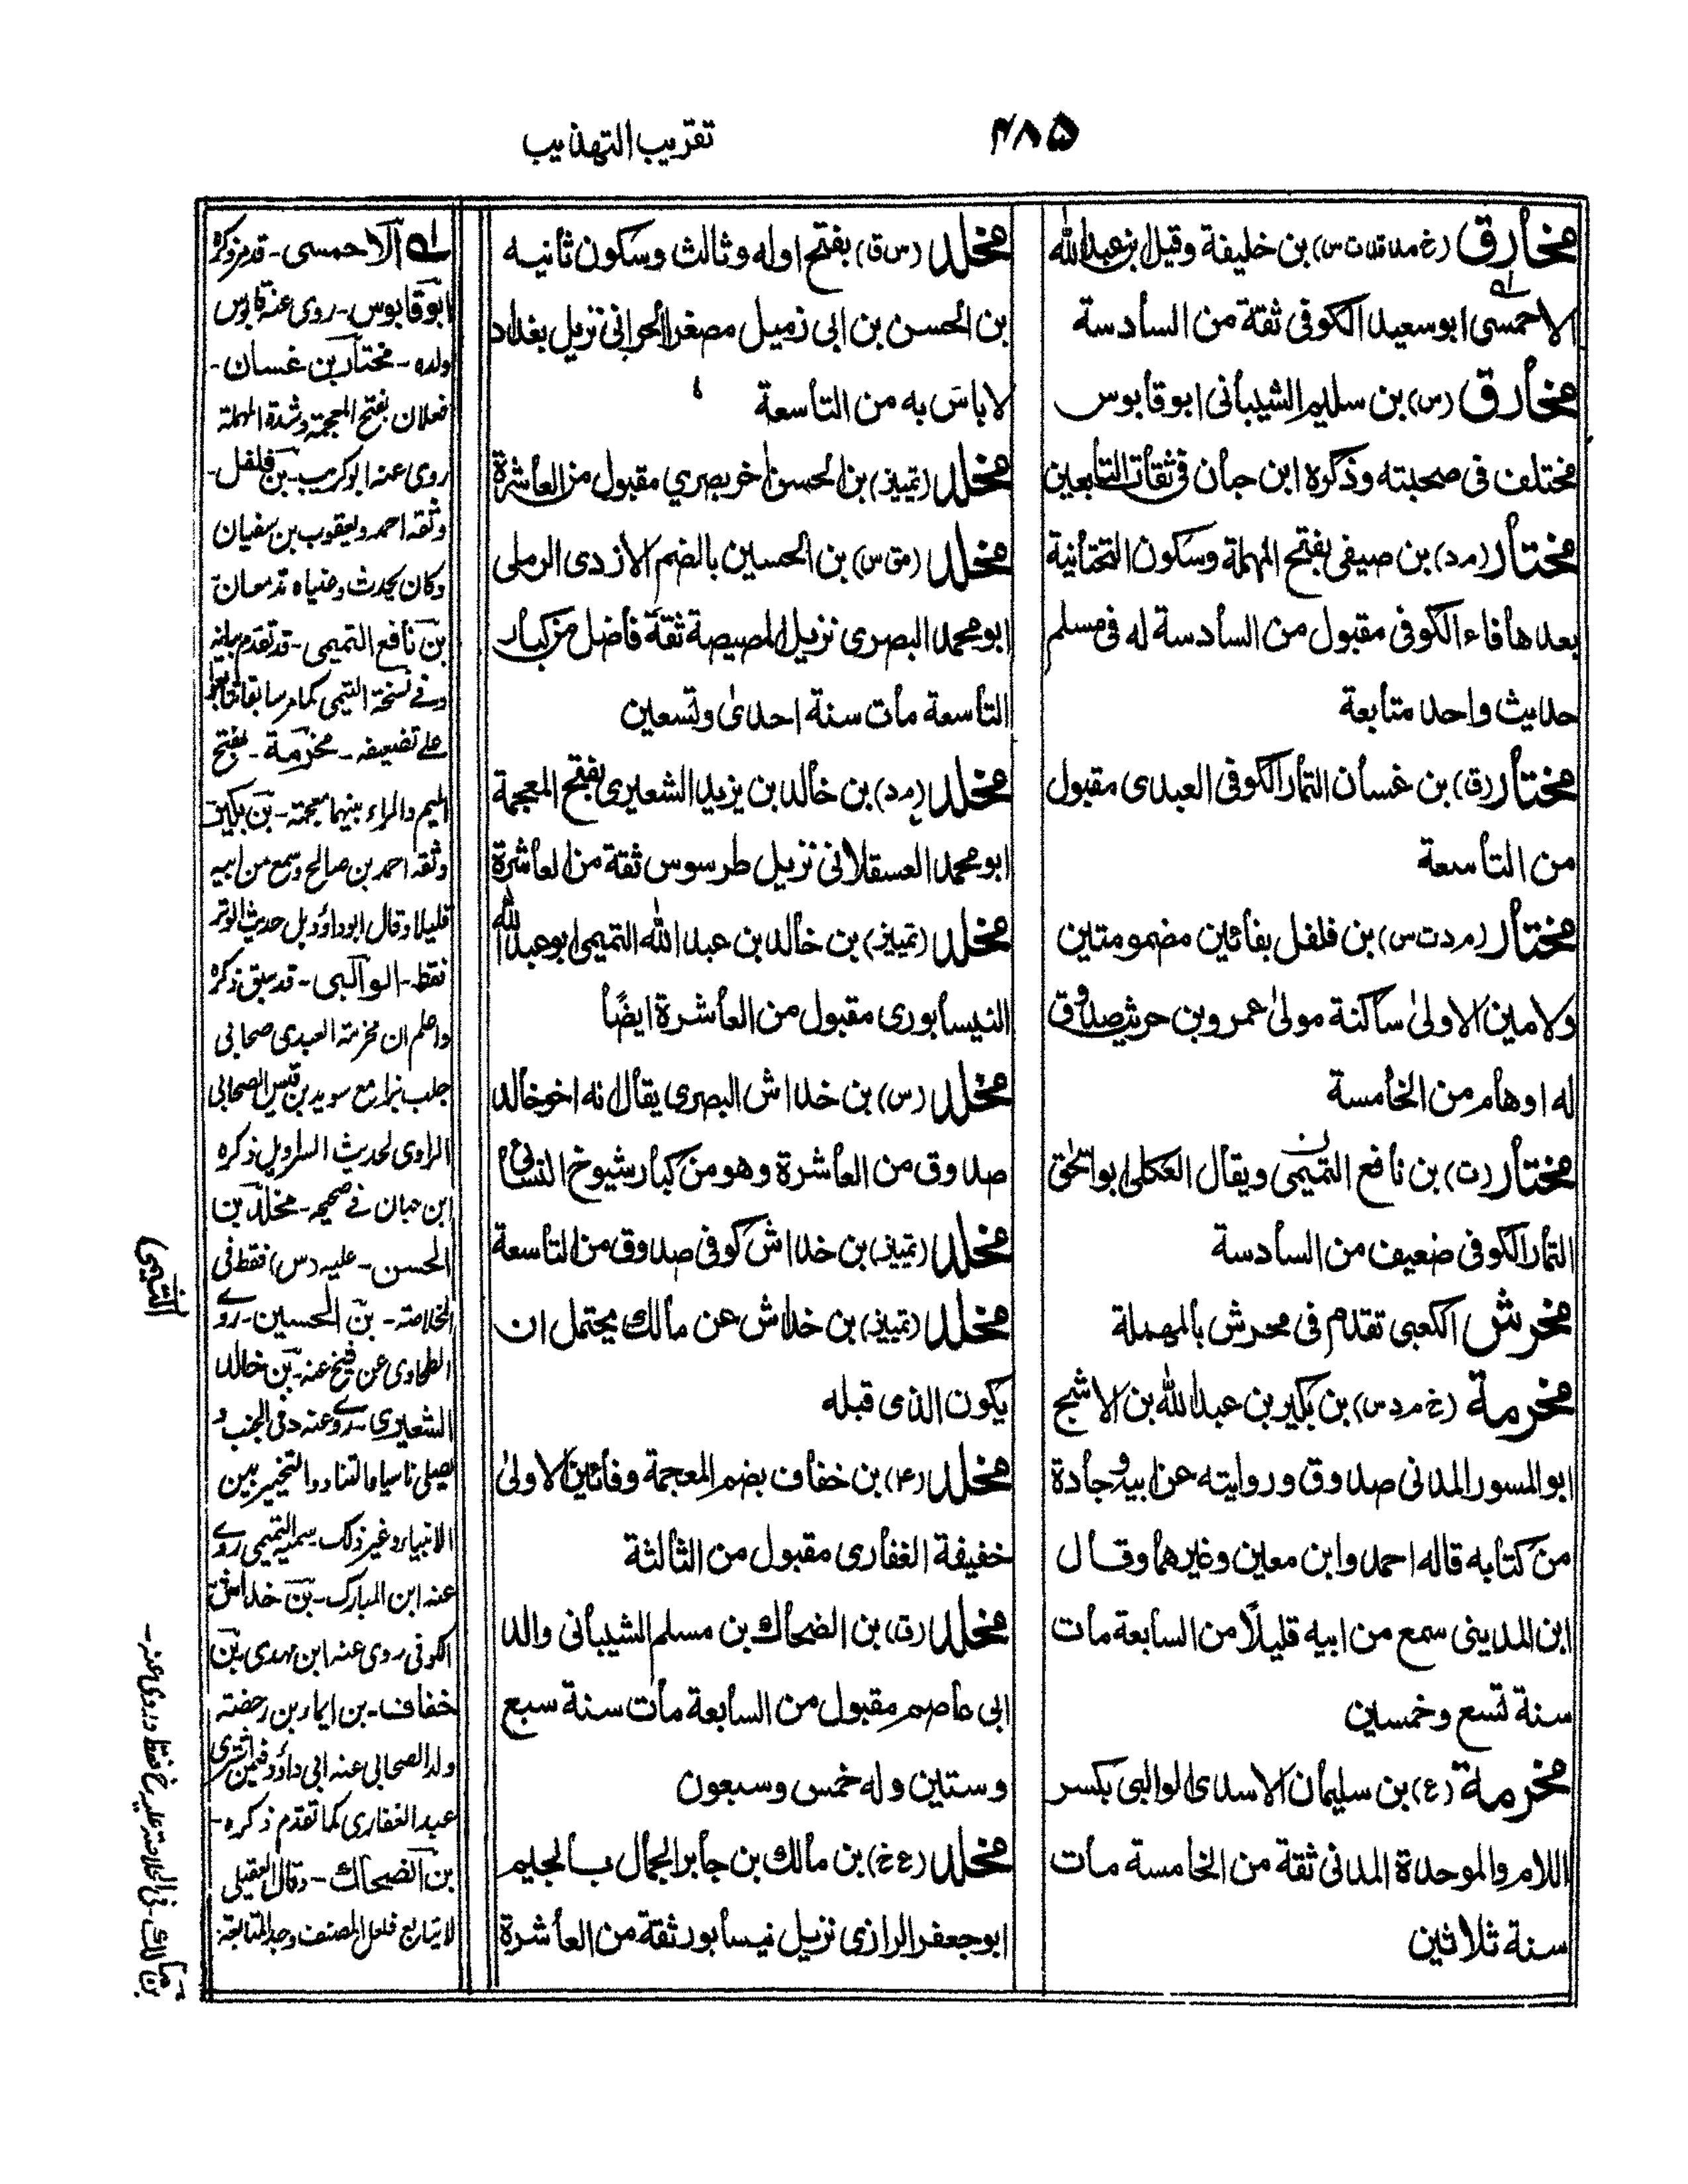 ۴۸۵
تقريب التهذيب
مخارق (خ مد قد ت س) بن خليفة وقيل بن عبدالله
الاحمسى ابو سعيد الكوفى ثقة من السادسة
مخارق (س) بن سليم الشيبانى ابو قابوس
مختلف فى صحبته وذكره ابن حبان فى ثقات التابعين
مختار (م د) بن صيفى بفتح المهملة وسكون التحتانية
بعدها فاء الكوفى مقبول من السادسة له فى مسلم
حديث واحد متابعة
مختار (ق) بن غسان التمار الكوفى العبدى مقبول
من التاسعة
مختار (م د ت س) بن فلفل بفائين مضمومتين
ولامين الاولىٰ ساكنة مولىٰ عمرو بن حريث صدوق
له اوهام من الخامسة
مختار (ت) بن نافع التميمى ويقال العكلى ابو اسحٰق
التمار الكوفى ضعيف من السادسة
مخرش الكعبى تقدم فى محرش بالمهملة
مخرمة (خ م د س) بن بكير بن عبدالله بن الاشج
ابو المسور المدنى صدوق وروايته عن ابيه وجادة
من كتابه قاله احمد وابن معين وغيرهما وقال
ابن المدينى سمع من ابيه قليلاً من السابعة مات
سنة تسع وخمسين
مخرمة (ع) بن سليمان الاسدى الوالبى بكسر
اللام والموحدة المدنى ثقة من الخامسة مات
سنة ثلاثين
مخلد (س ق) بفتح اوله وثالث وسكون ثانيه
بن الحسن بن ابى زميل مصغر الحرانى نزيل بغداد
لا باس به من التاسعة
مخلد (تمييز) بن الحسن اخر بصري مقبول من العاشرة
مخلد (مق س) بن الحسين بالضم الازدى الرملى
ابو محمد البصرى نزيل المصيصة ثقة فاضل من كبار
التاسعة مات سنة احدىٰ وتسعين
مخلد (م د) بن خالد بن يزيد الشعيرى بفتح المعجمة
ابو محمد العسقلانى نزيل طرسوس ثقة من العاشرة
مخلد (تمييز) بن خالد بن عبد الله التميمى ابو عبد الله
النيسابورى مقبول من العاشرة ايضًا
مخلد (س) بن خداش البصرى يقال انه اخو خالد
صدوق من العاشرة وهو من كبار شيوخ النسائى
مخلد (تمييز) بن خداش كوفى صدوق من التاسعة
مخلد (تمييز) بن خداش عن مالك يحتمل ان
يكون الذى قبله
مخلد (۴) بن خفاف بضم المعجمة وفائين الاولىٰ
خفيفة الغفارى مقبول من الثالثة
مخلد (ق) بن الضحاك بن مسلم الشيبانى والد
ابى عاصم مقبول من السابعة مات سنة سبع
وستين وله خمس وسبعون
مخلد (عخ) بن مالك بن جابر الجمال بالجيم
ابو جعفر الرازى نزيل نيسابور ثقة من العاشرة
له الاحمسى - قد مر ذكره
ابو قابوس - روى عنه قابوس
ولده - مختار بن غسان -
فعلان بفتح المعجمة وشدة المهملة
روى عنه ابو كريب - بن فلفل -
وثقه احمد ويعقوب بن سفيان
وكان يحدث وعيناه تدمعان
بن نافع التميمى - قد تقدم بيانه
وفى نسخة التيمى كما مر سابقا
على تضعيفه - مخرمة - بفتح
الميم والراء بينهما معجمة - بن بكير
وثقه احمد بن صالح وسمع من ابيه
قليلا وقال ابو داؤد بل حديث الوتر
فقط - الوالبى - قد سبق ذكره
واعلم ان مخرمة العبدى صحابى
جلب بزا مع سويد بن قيس الصحابى
الراوى لحديث السراويل ذكره
ابن حبان فى صحيحه - مخلد بن
الحسن - عليه (س) فقط فى
الخلاصة - بن الحسين - روى
الطحاوى عن فهد عنه - بن خالد
الشعيرى - روى عنه د فى الجنب
يصلى ناسيا والتخيير بين
الانبياء وغير ذلك - سميه التميمى روى
عنه ابن المبارك - بن خداش
الكوفى روى عنه ابن مهدى - بن
خفاف - بن ايماء بن رحضة
ولد الصحابى عنه ابى داؤد فيمن اشترى
عبدا الغفارى كما تقدم ذكره -
بن الضحاك - وقال العقيلى
لا يتابع فلعل المصنف وجد المتابعة
التيمى
بن مالك - فى الخلاصة عليه خ فقط وروى عنه -